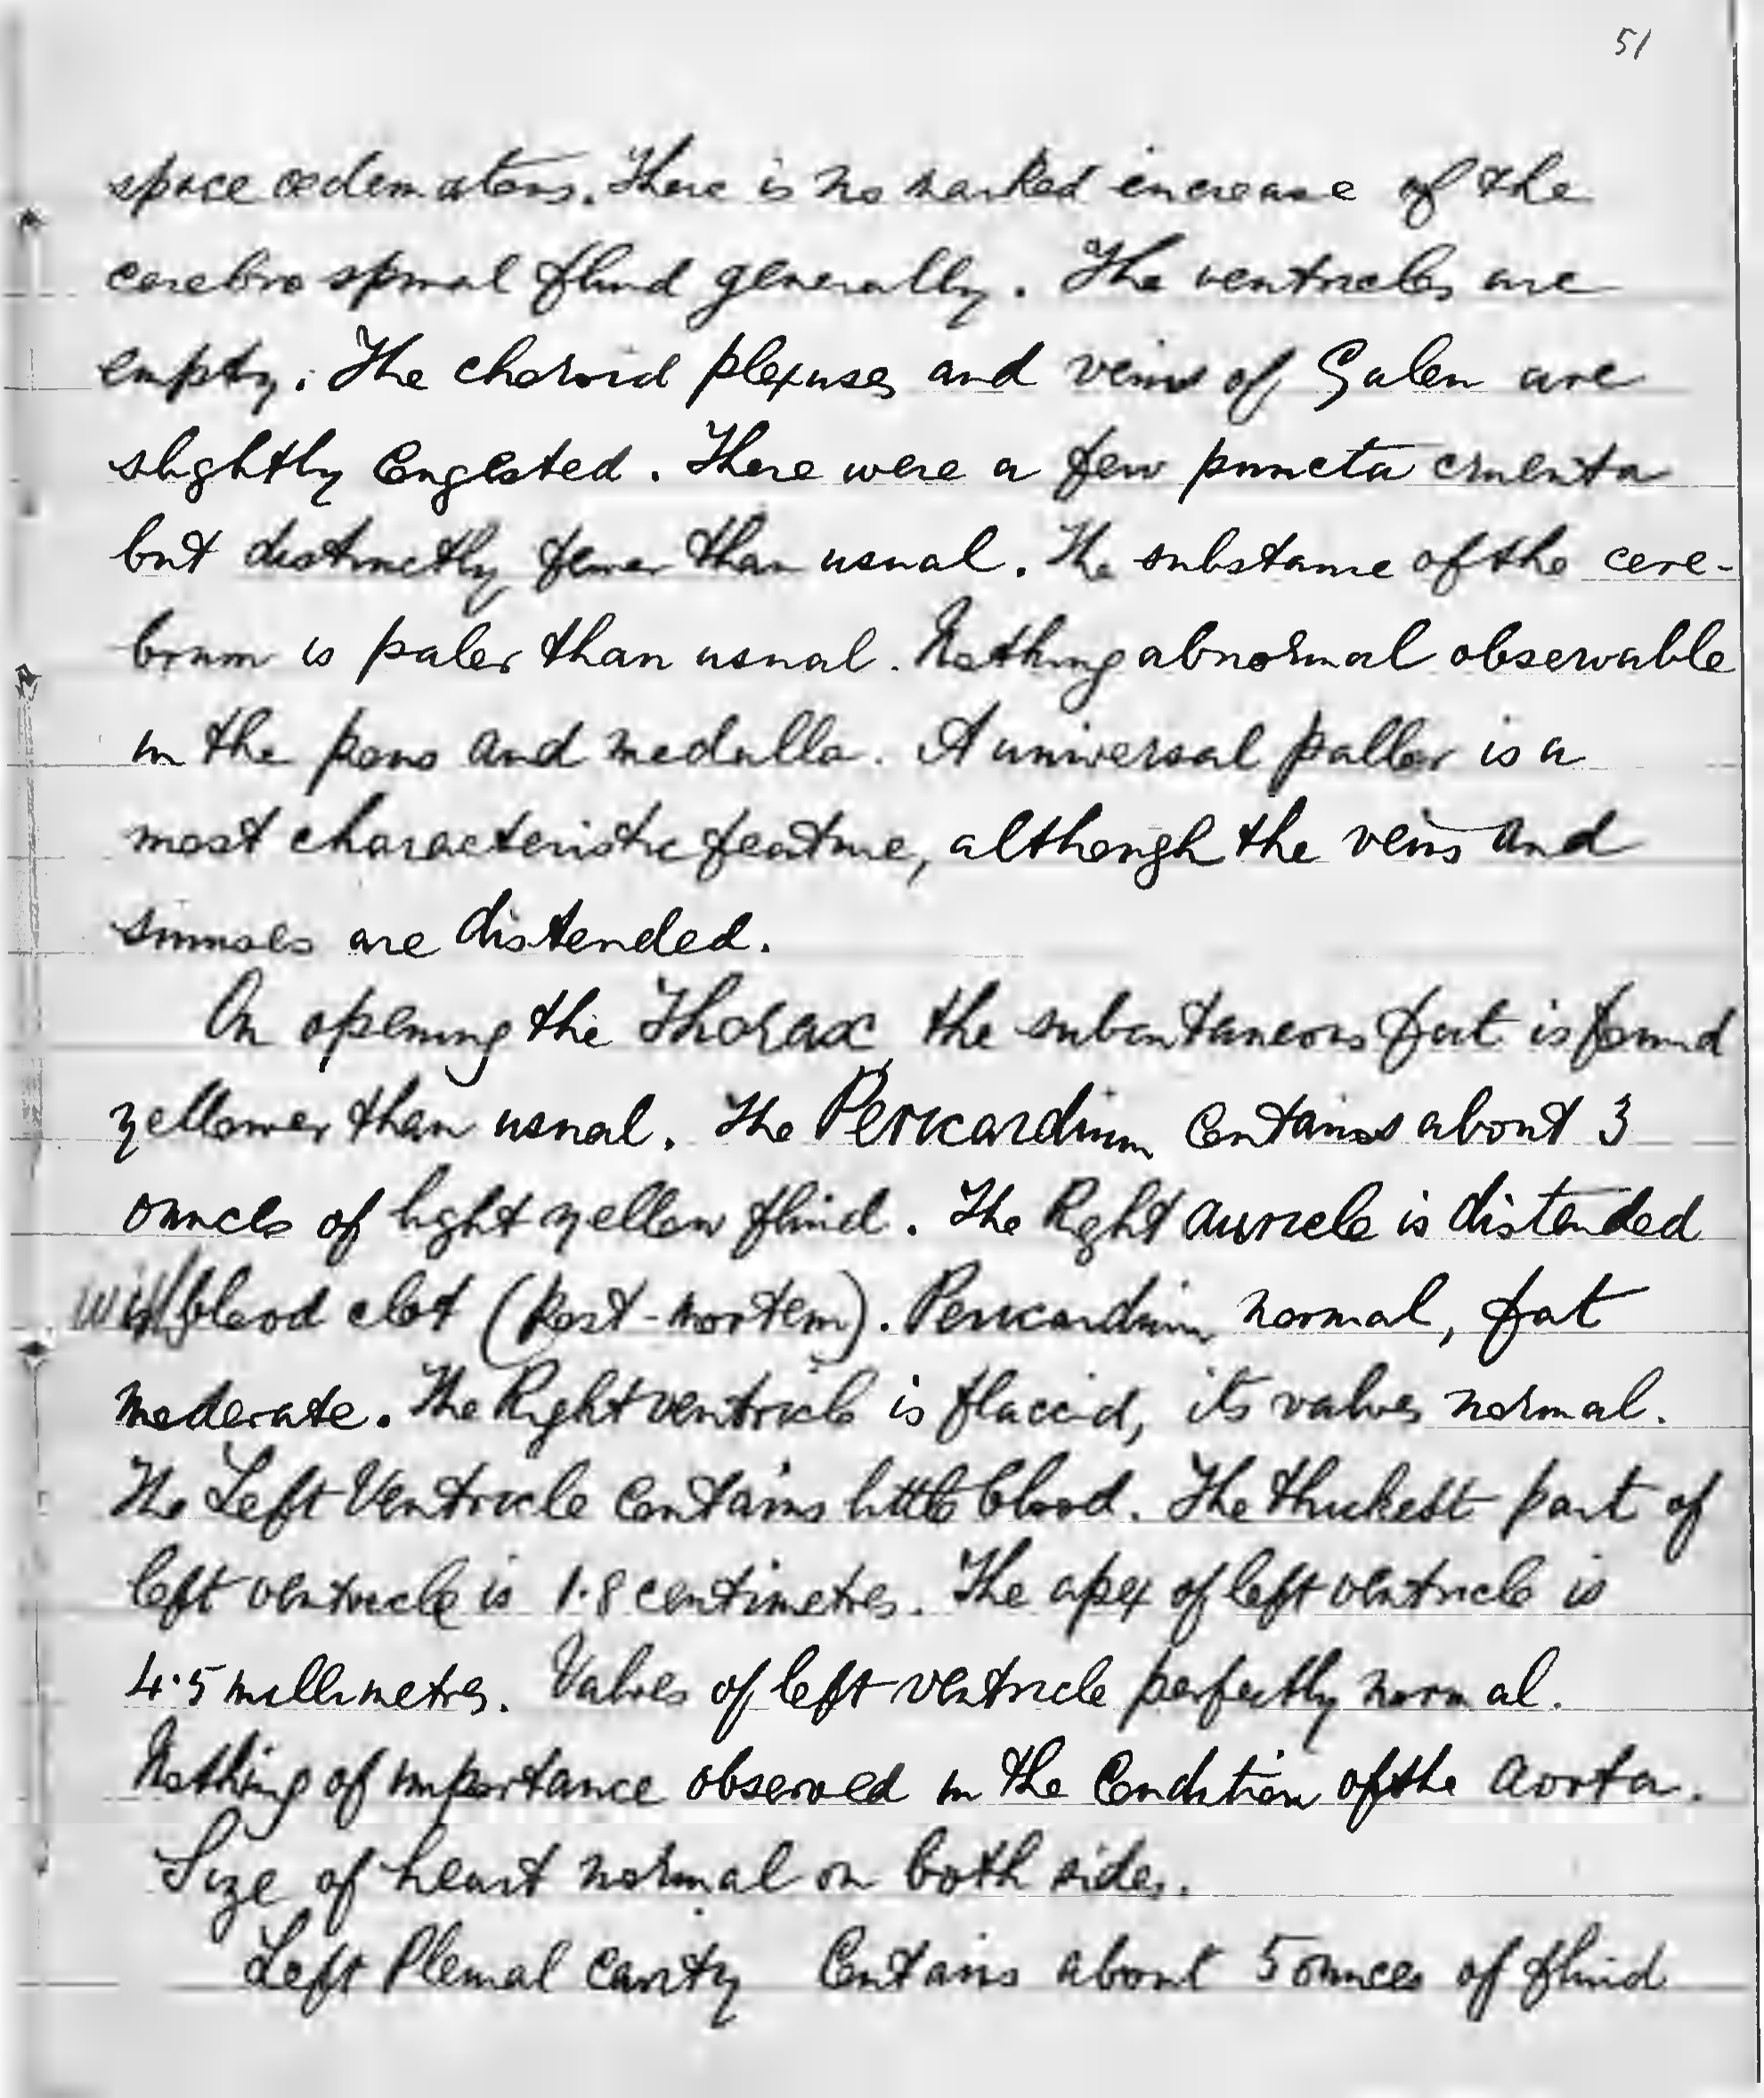 51
space oedematous. There is no marked increase of the
cerebro spinal fluid generally. The ventricles are
empty. The choroid plexuses and veins of Galen are
slightly Congested. There were a few puncta cruenta
but distinctly fewer than usual. The substance of the cere-
brum is paler than usual. Nothing abnormal observable
in the pons and medulla. A universal pallor is a
most characteristic feature, although the veins and
sinuses are distended.
On opening the Thorax the subcutaneous fat is found
yellower than usual. The Pericardium Contains about 3
ounces of light yellow fluid. The Right auricle is distended
with blood clot (Post-mortem). Pericardium normal, fat
moderate. The Right ventricle is flaccid, its valves normal.
The Left Ventricle Contains little blood. The thickest part of
left ventricle is 1.8 centimetres. The apex of left ventricle is
4.5 millimetres. Valves of left ventricle perfectly normal.
Nothing of importance observed in the Condition of the aorta.
Size of heart normal on both sides.
Left Pleural Cavity Contains about 5 ounces of fluid